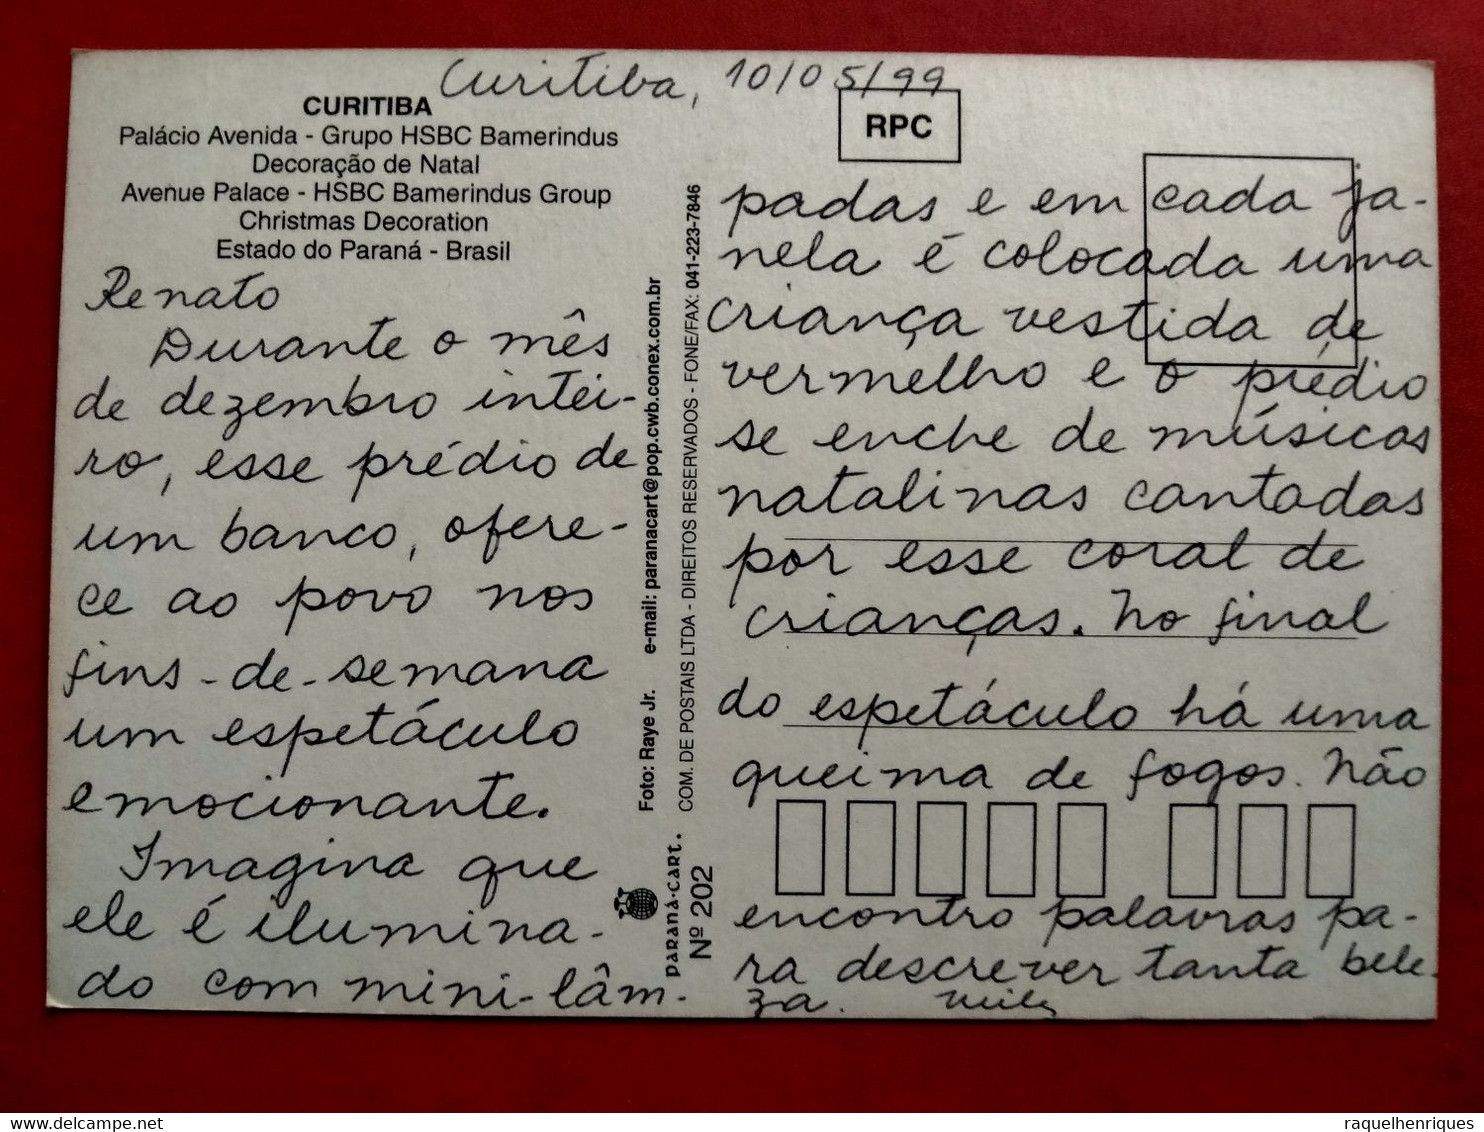 Curitiba, 10/05/99
CURITIBA
Palácio Avenida - Grupo HSBC Bamerindus
Decoração de Natal
Avenue Palace - HSBC Bamerindus Group
Christmas Decoration
Estado do Paraná - Brasil
RPC
Renato
Durante o mês
de dezembro intei-
ro, esse prédio de
um banco, ofere-
ce ao povo nos
fins-de-semana
um espetáculo
emocionante.
Imagina que
ele é ilumina-
do com mini-lâm-
Foto: Raye Jr. e-mail: paranacart@pop.cwb.conex.com.br
COM. DE POSTAIS LTDA - DIREITOS RESERVADOS - FONE/FAX: 041-223-7846
paraná-cart.
Nº 202
padas e em cada ja-
nela é colocada uma
criança vestida de
vermelho e o prédio
se enche de músicas
natalinas cantadas
por esse coral de
crianças. No final
do espetáculo há uma
queima de fogos. Não
encontro palavras pa-
ra descrever tanta bele-
za.
delcampe.net
raquelhenriques